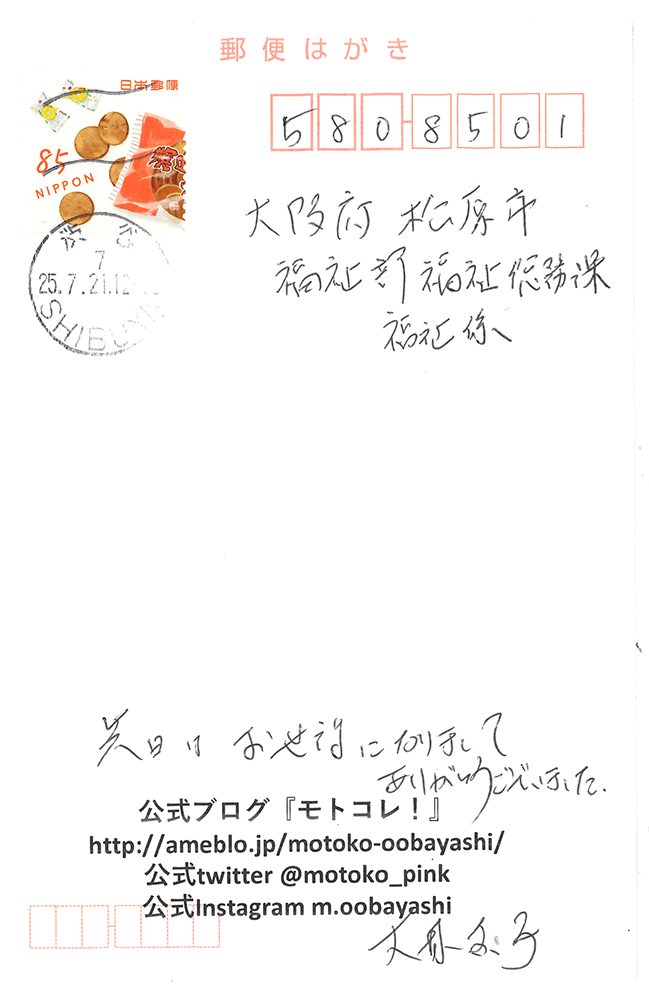 郵便はがき
日本郵便
85
NIPPON
580-8501
渋谷
7
25.7.21.12
SHIBUYA
大阪府 松原市
福祉部 福祉総務課
福祉係
先日は お世話になりまして
ありがとうございました.
公式ブログ『モトコレ！』
http://ameblo.jp/motoko-oobayashi/
公式twitter @motoko_pink
公式Instagram m.oobayashi
大林素子